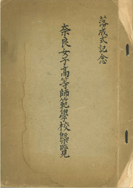 落成式記念
奈良女子高等師範學校概覽